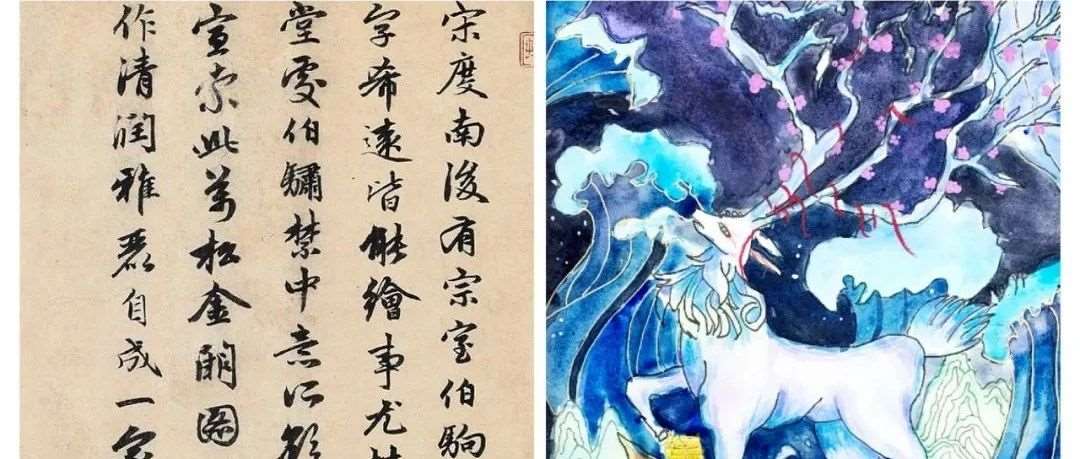 宋度南後有宗室伯駒
字希遠皆能繪事尤
堂處伯驌禁中意所
宣索此萬松金闕圖
作清潤雅麗自成一家